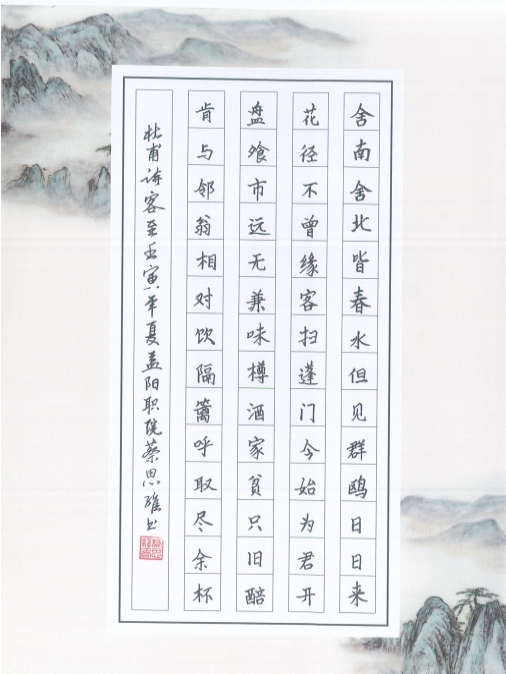 舍南舍北皆春水但见群鸥日日来
花径不曾缘客扫蓬门今始为君开
盘飧市远无兼味樽酒家贫只旧醅
肯与邻翁相对饮隔篱呼取尽余杯
杜甫诗客至壬寅年夏益阳职院蔡思雅书